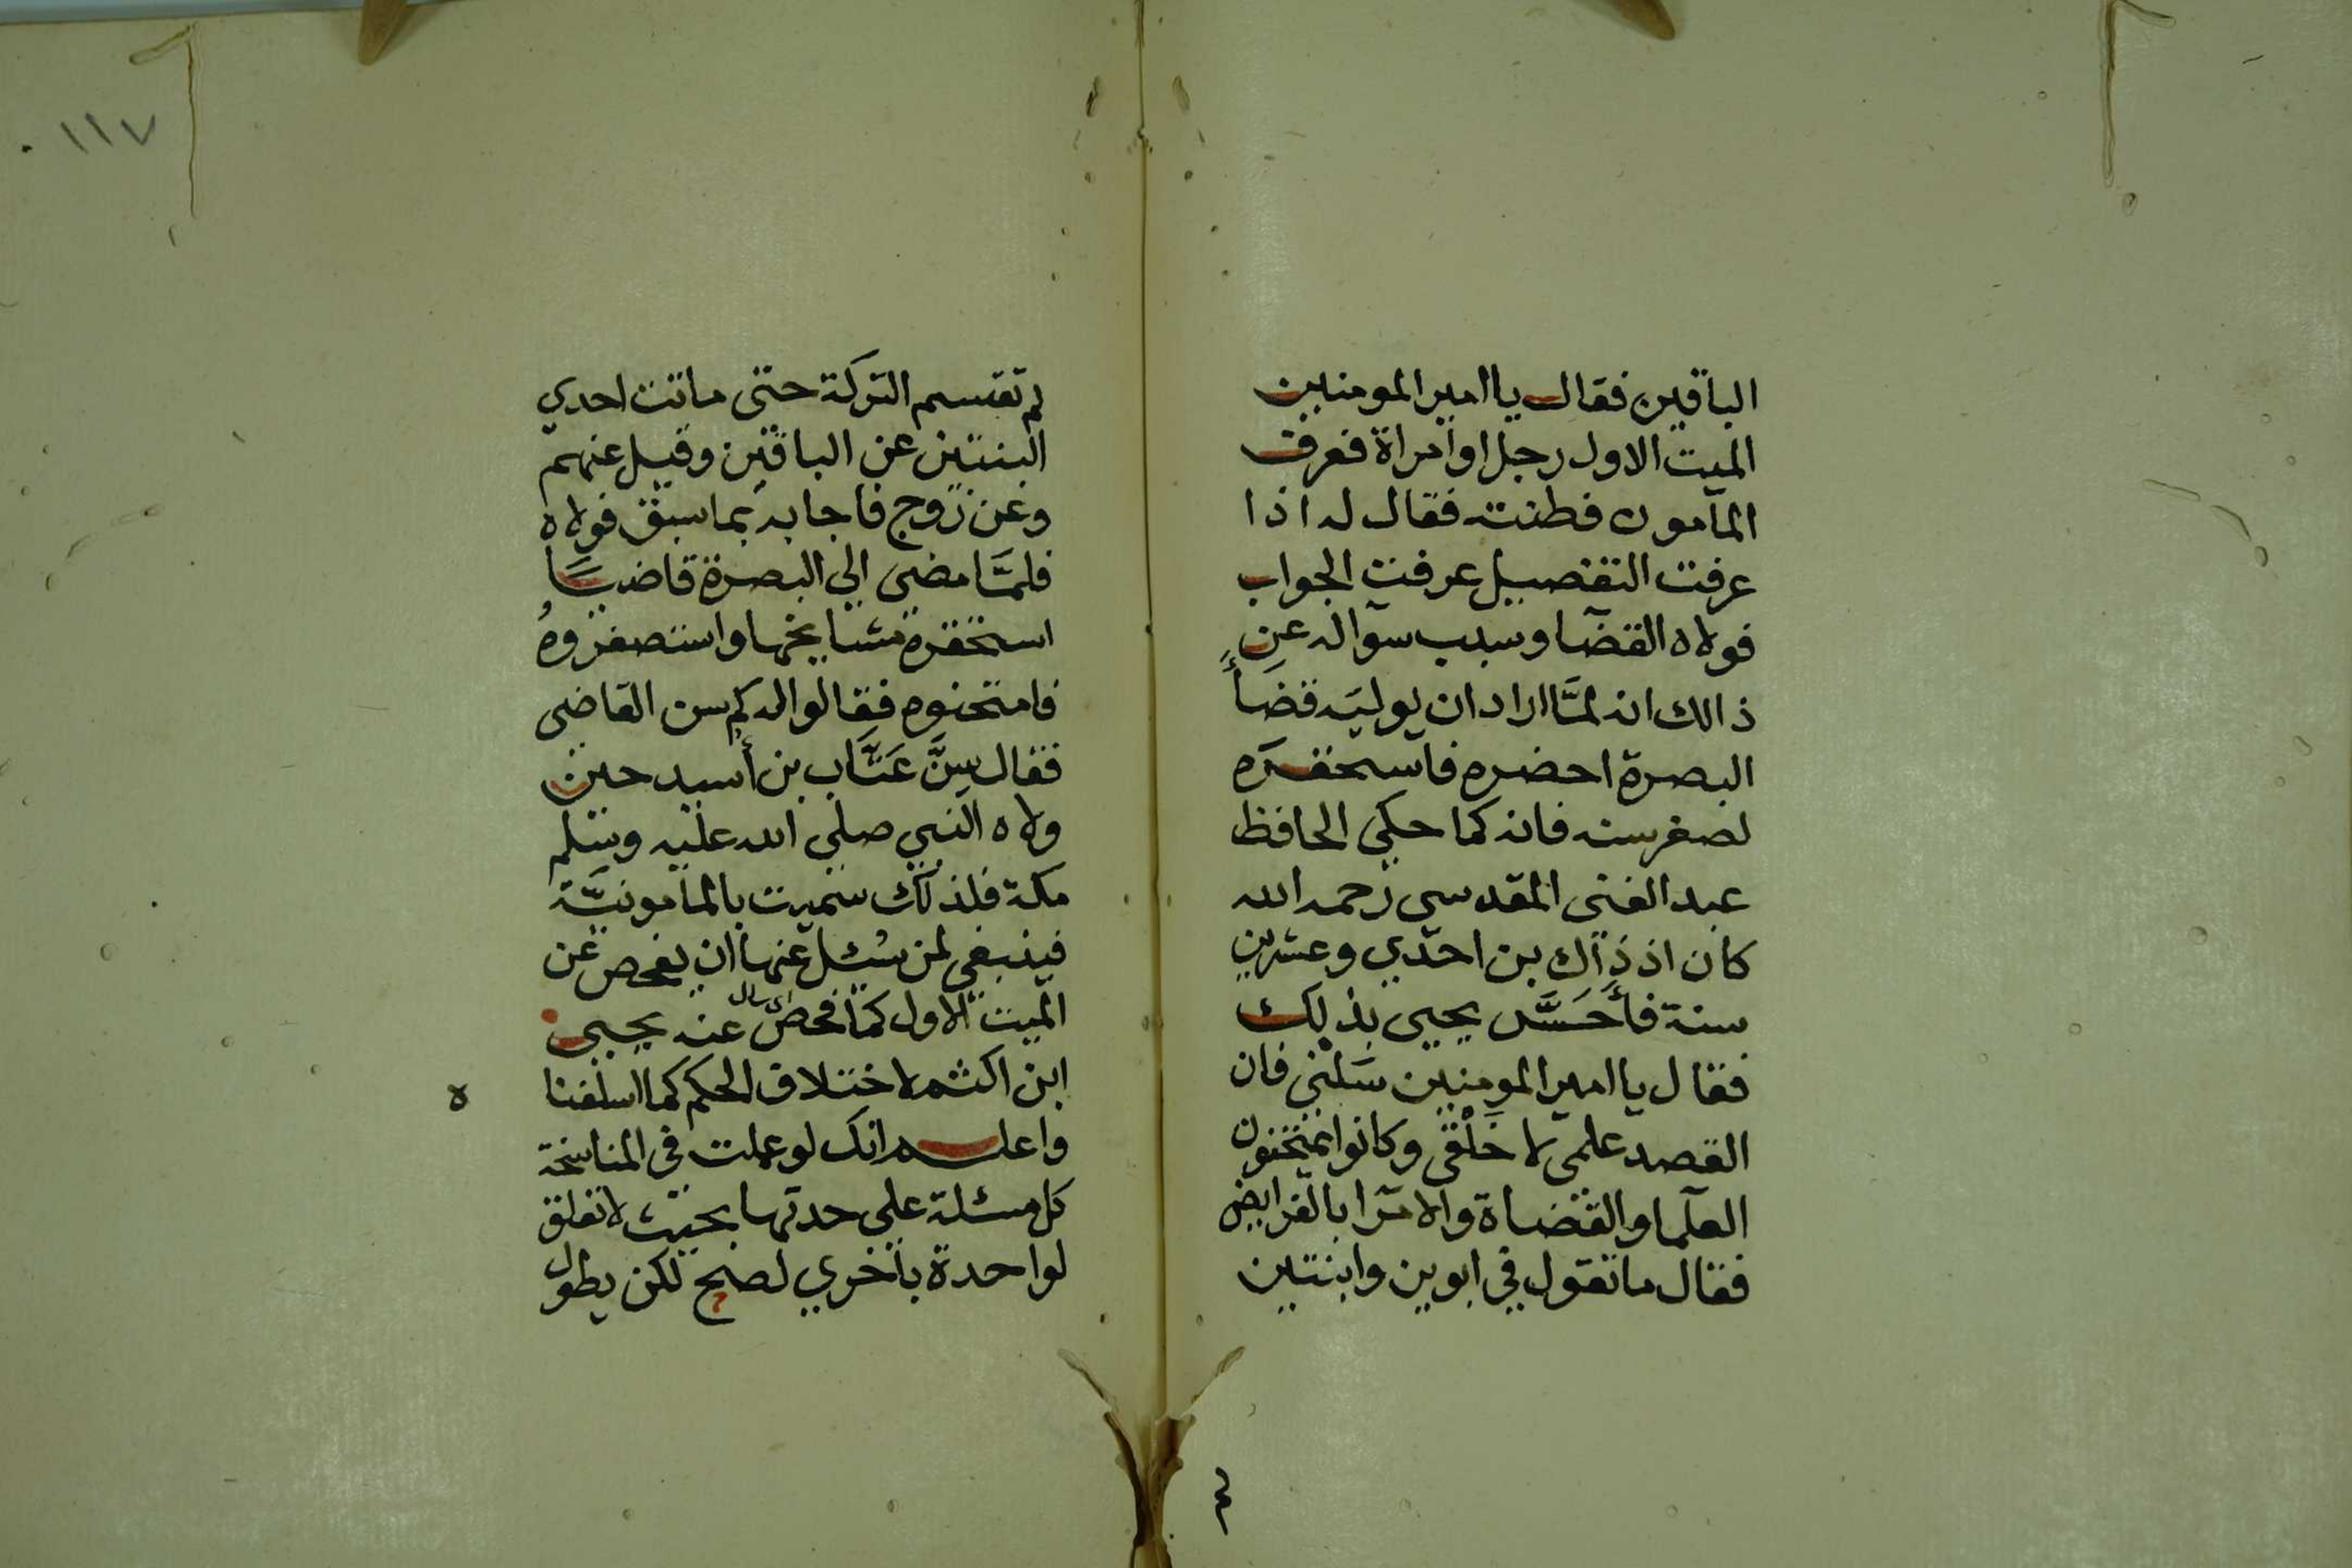 الباقين فقال يا امير المومنين
الميت الاول رجل او امراة فعرف
المآمون فطنته فقال له اذا
عرفت التفصيل عرفت الجواب
فولاه القضآ وسبب سوآله عن
ذالك انه لمَّا اراد ان يوليَه قضَاءٍ
البصرة احضره فاستحقره
لصغر سنه فانه كما حكي الحافظ
عبد الغنى المقدسي رحمه الله
كان اذ ذاك بن احدي وعشرين
سنة فأحَسَّ يحيى بذلك
فقال يا امير المومنين سَلْني فان
القصد علمى لا خَلْقى وكانوا يمتحنون
العلمآ والقضاة والامرآ بالفرايض
فقال ما تقول في ابوين وابنتين
لم
١١٧
لم تقتسم التركة حتى ماتت احدي
البنتين عن الباقين وقيل عنهم
وعن زوج فاجابه بما سبق فولاه
فلمَّا مضى الي البصرة قاضيًا
استحقره مشايخها واستصغروهُ
فامتحنوه فقالوا له كم سن القاضى
فقال سِنَّ عَتَّاب بن أُسيد حين
ولاه النبي صلي الله عليه وسلم
مكة فلذلك سميت بالمامونيَّة
فينبغي لمن سُئِل عنها ان يفحص عن
الميت الاول كما فحص اى سال عنه يحيى
ابن اكثم لاختلاف الحكم كما اسلفنا ه
واعلم انك لو عملت فى المناسخة
كل مسئلة على حدتها بحيث لا تعلق
لواحدة باخري لصح لكن يطول